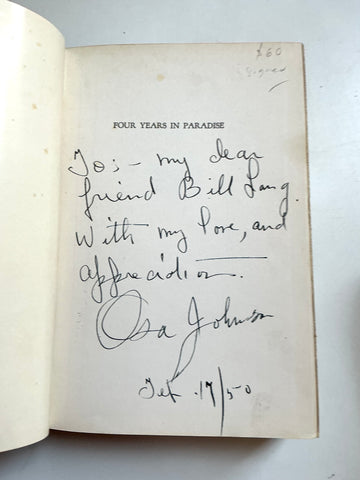 $60
signed
FOUR YEARS IN PARADISE
To:- my dear
friend Bill Lang.
With my love, and
appreciation.
Osa Johnson
Feb. 17/50